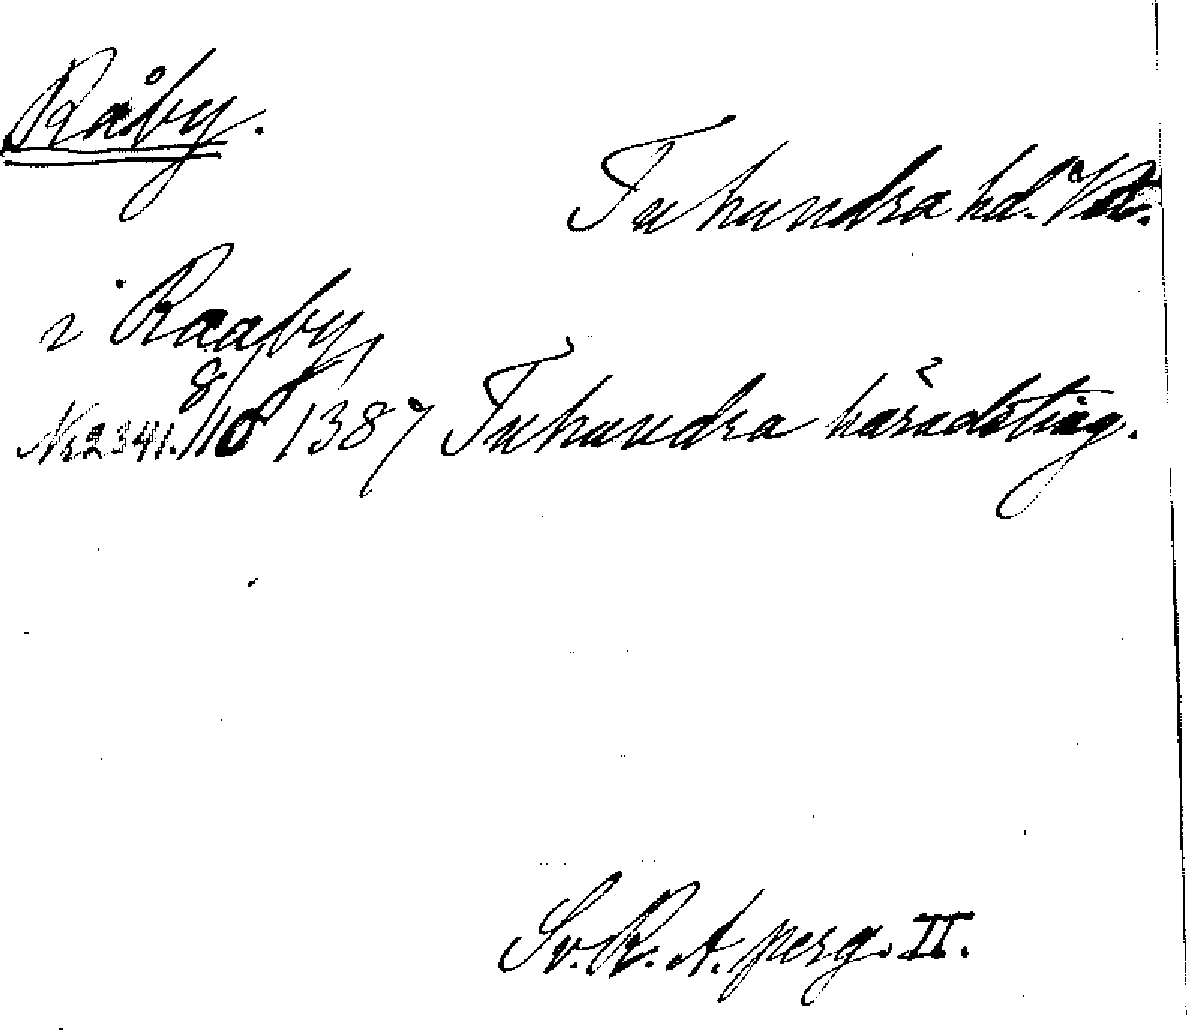 Råby.
Tuhundra hd. Vstm.
i Raaby,
Nr 2341. 8/10 1387 Tuhundra häradsting.
Sv. R. A. perg. II.